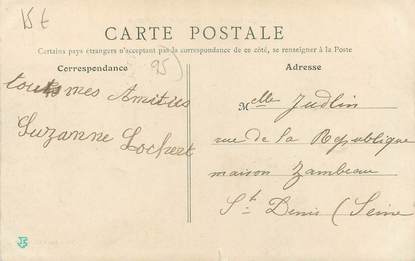 15 €
CARTE POSTALE
Certains pays étrangers n'acceptant pas la correspondance de ce côté, se renseigner à la Poste
Correspondance
95
Adresse
toutes mes Amitiés
Suzanne Lochert
Melle Judlin
rue de la République
maison Zambeau
St Denis (Seine